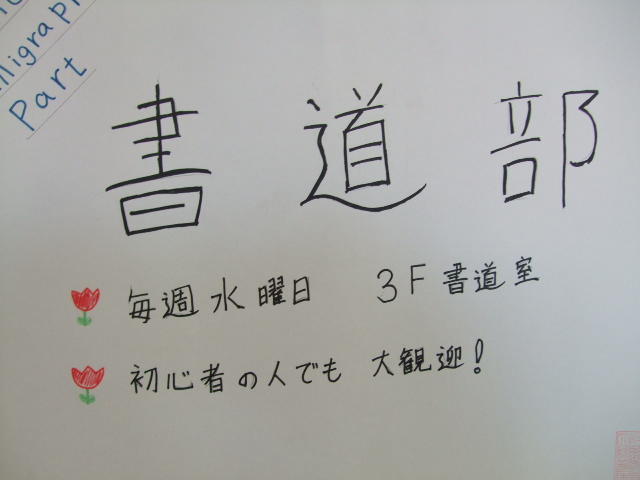 Part
書道部
毎週水曜日 3F書道室
初心者の人でも 大観迎!